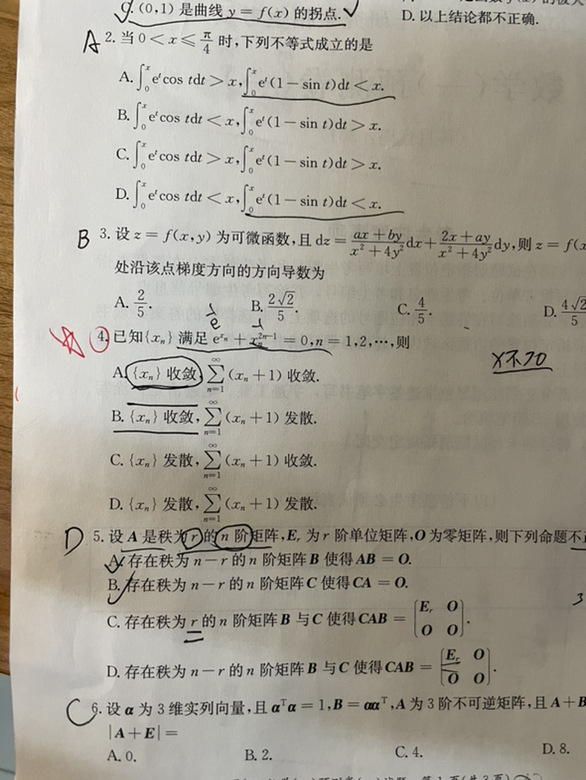 C. (0,1) 是曲线 y = f(x) 的拐点. D. 以上结论都不正确.
A 2. 当 0 < x ≤ π/4 时,下列不等式成立的是
A. ∫₀ˣ eᵗcos tdt > x, ∫₀ˣ eᵗ(1 − sin t)dt < x.
B. ∫₀ˣ eᵗcos tdt < x, ∫₀ˣ eᵗ(1 − sin t)dt > x.
C. ∫₀ˣ eᵗcos tdt > x, ∫₀ˣ eᵗ(1 − sin t)dt > x.
D. ∫₀ˣ eᵗcos tdt < x, ∫₀ˣ eᵗ(1 − sin t)dt < x.
B 3. 设 z = f(x,y) 为可微函数,且 dz = (ax + by)/(x² + 4y²)dx + (2x + ay)/(x² + 4y²)dy,则 z = f(x
处沿该点梯度方向的方向导数为
A. 2/5. B. 2√2/5. C. 4/5. D. 4√2/5
4. 已知{xₙ} 满足 e^{xₙ} + xₙ^{2n−1} = 0, n = 1,2,⋯,则
x不>0
A. {xₙ} 收敛, ∑_{n=1}^{∞}(xₙ + 1) 收敛.
B. {xₙ} 收敛, ∑_{n=1}^{∞}(xₙ + 1) 发散.
C. {xₙ} 发散, ∑_{n=1}^{∞}(xₙ + 1) 收敛.
D. {xₙ} 发散, ∑_{n=1}^{∞}(xₙ + 1) 发散.
D 5. 设 A 是秩为 r 的 n 阶矩阵, Eᵣ 为 r 阶单位矩阵, O 为零矩阵,则下列命题不
A. 存在秩为 n − r 的 n 阶矩阵 B 使得 AB = O.
B. 存在秩为 n − r 的 n 阶矩阵 C 使得 CA = O.
C. 存在秩为 r 的 n 阶矩阵 B 与 C 使得 CAB = [Eᵣ O; O O].
D. 存在秩为 n − r 的 n 阶矩阵 B 与 C 使得 CAB = [Eᵣ O; O O].
C 6. 设 α 为 3 维实列向量,且 αᵀα = 1, B = ααᵀ, A 为 3 阶不可逆矩阵,且 A + B
|A + E| =
A. 0. B. 2. C. 4. D. 8.